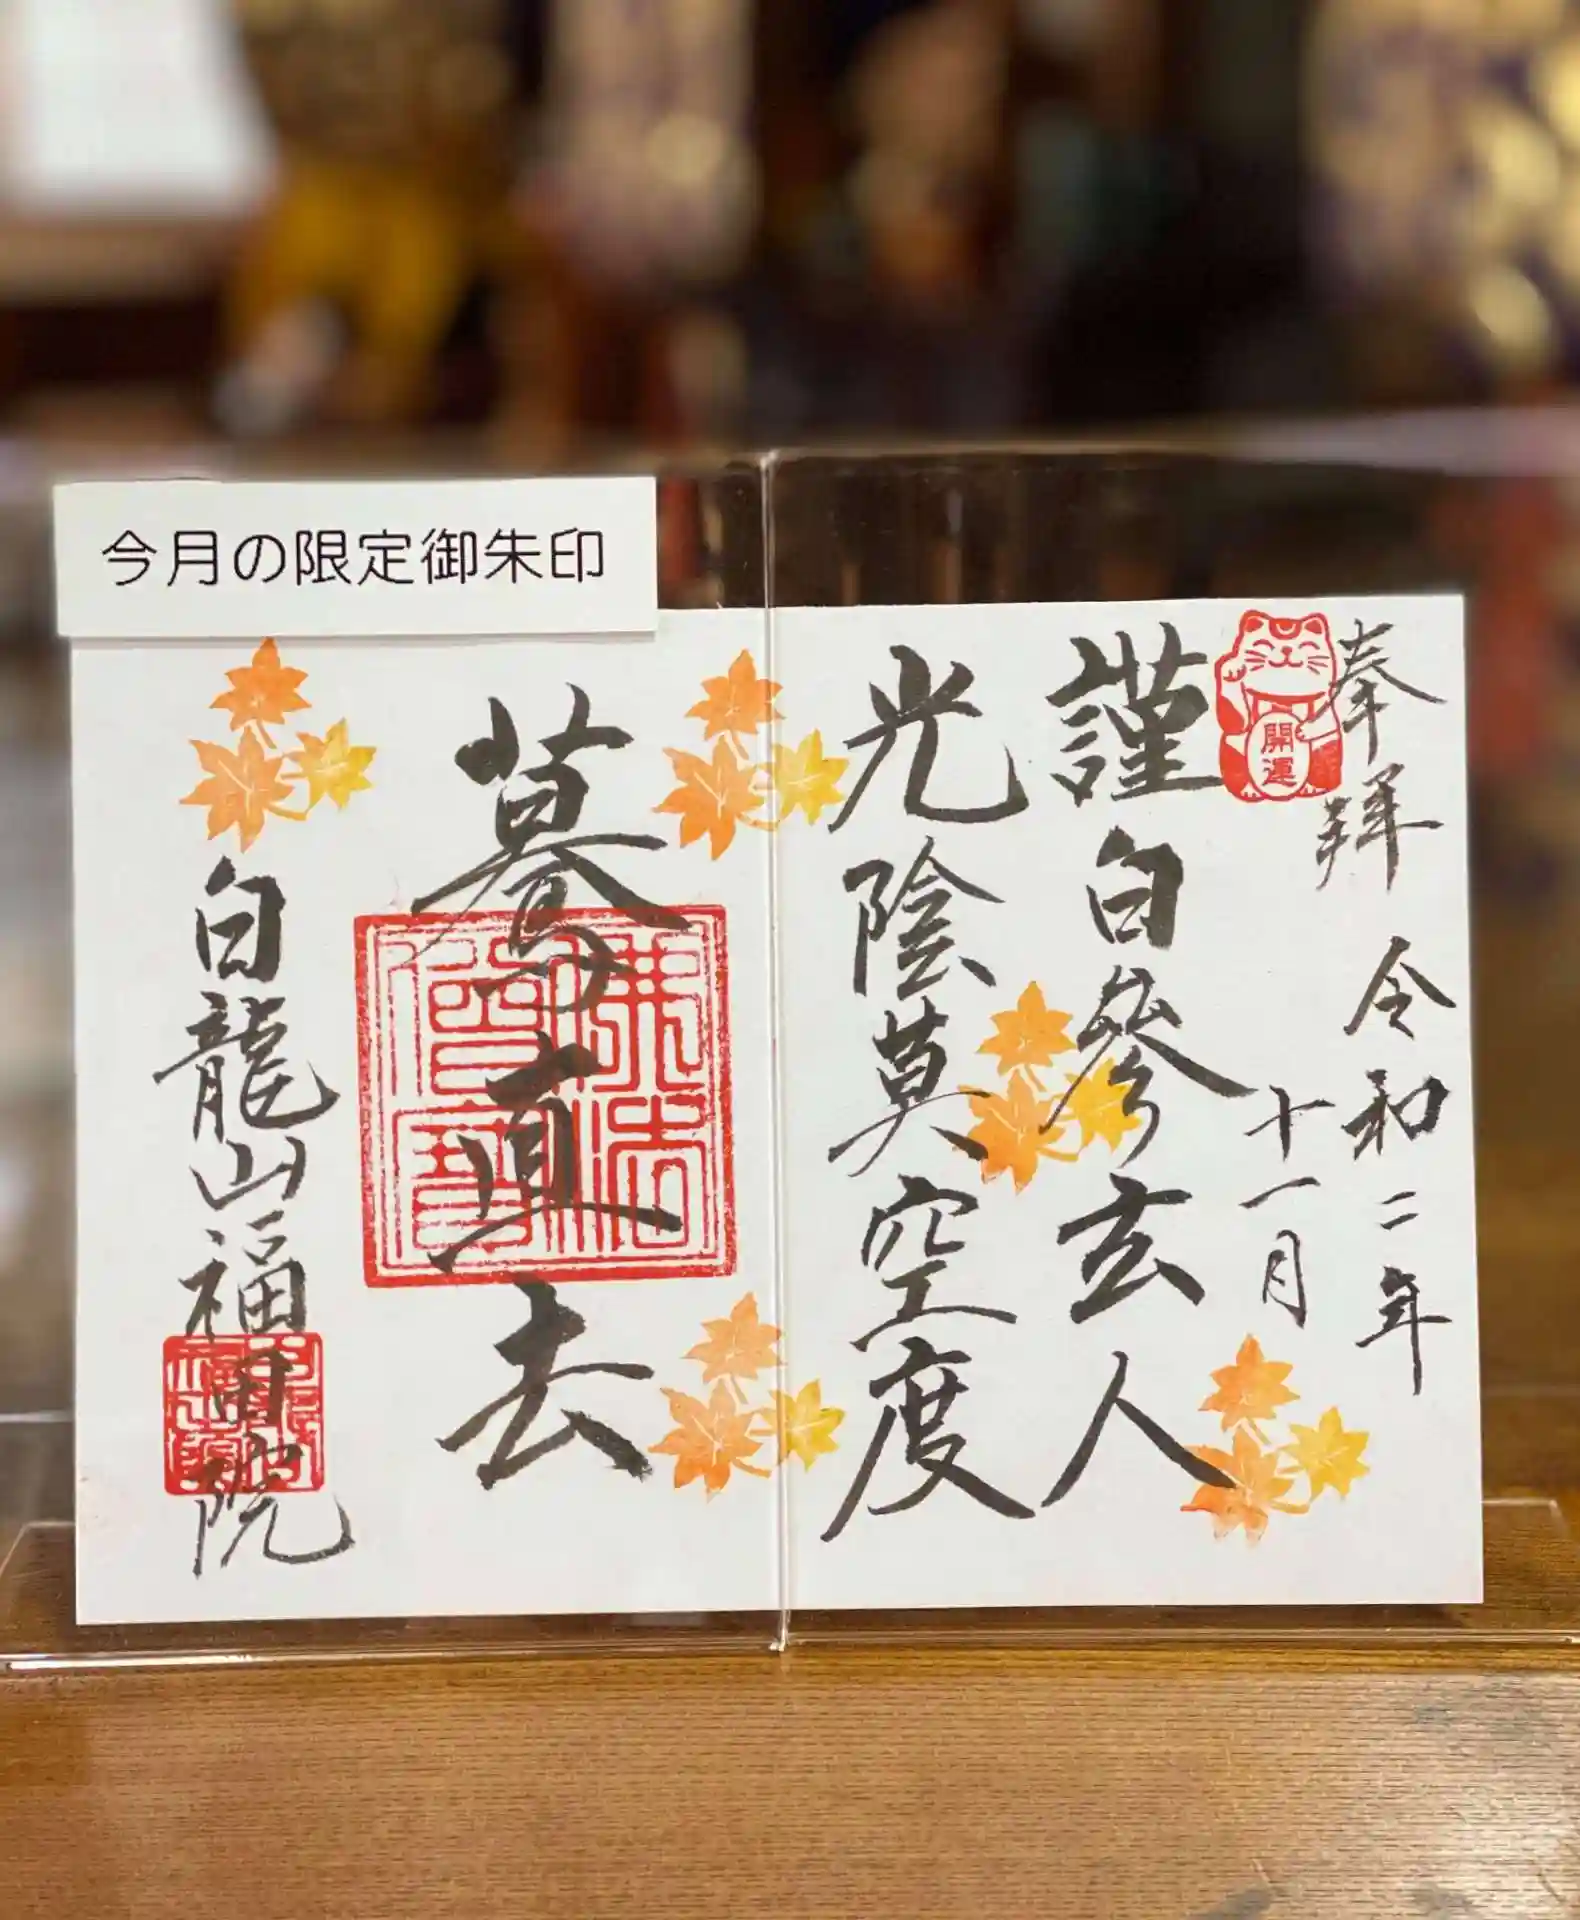 今月の限定御朱印
奉拝
開運
令和二年
十一月
謹白參玄人
光陰莫空度
驀直去
佛法僧寶
白龍山福田院